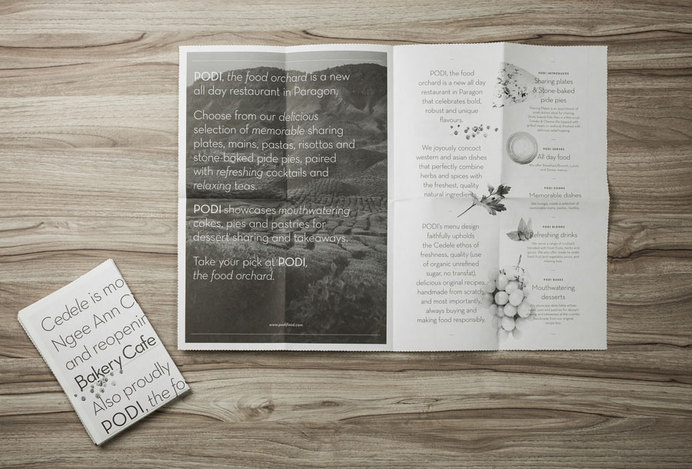 PODI, the food orchard is a new
all day restaurant in Paragon.
Choose from our delicious
selection of memorable sharing
plates, mains, pastas, risottos and
stone-baked pide pies, paired
with refreshing cocktails and
relaxing teas.
PODI showcases mouthwatering
cakes, pies and pastries for
dessert sharing and takeaways.
Take your pick at PODI,
the food orchard.
www.podifood.com
PODI, the food
orchard is a new all day
restaurant in Paragon
that celebrates bold,
robust and unique
flavours.
We joyously concoct
western and asian dishes
that perfectly combine
herbs and spices with
the freshest, quality
natural ingredients.
PODI's menu design
faithfully upholds
the Cedele ethos of
freshness, quality (use
of organic unrefined
sugar, no transfat),
delicious original recipes,
handmade from scratch,
and most importantly,
always buying and
making food responsibly.
PODI INTRODUCES
Sharing plates
& Stone-baked
pide pies
PODI SERVES
All day food
PODI
Memorable dishes
PODI BLENDS
Refreshing drinks
PODI BAKES
Mouthwatering
desserts
Cedele is mo
Ngee Ann C
and reopenin
Bakery Cafe
Also proudly
PODI, the fo